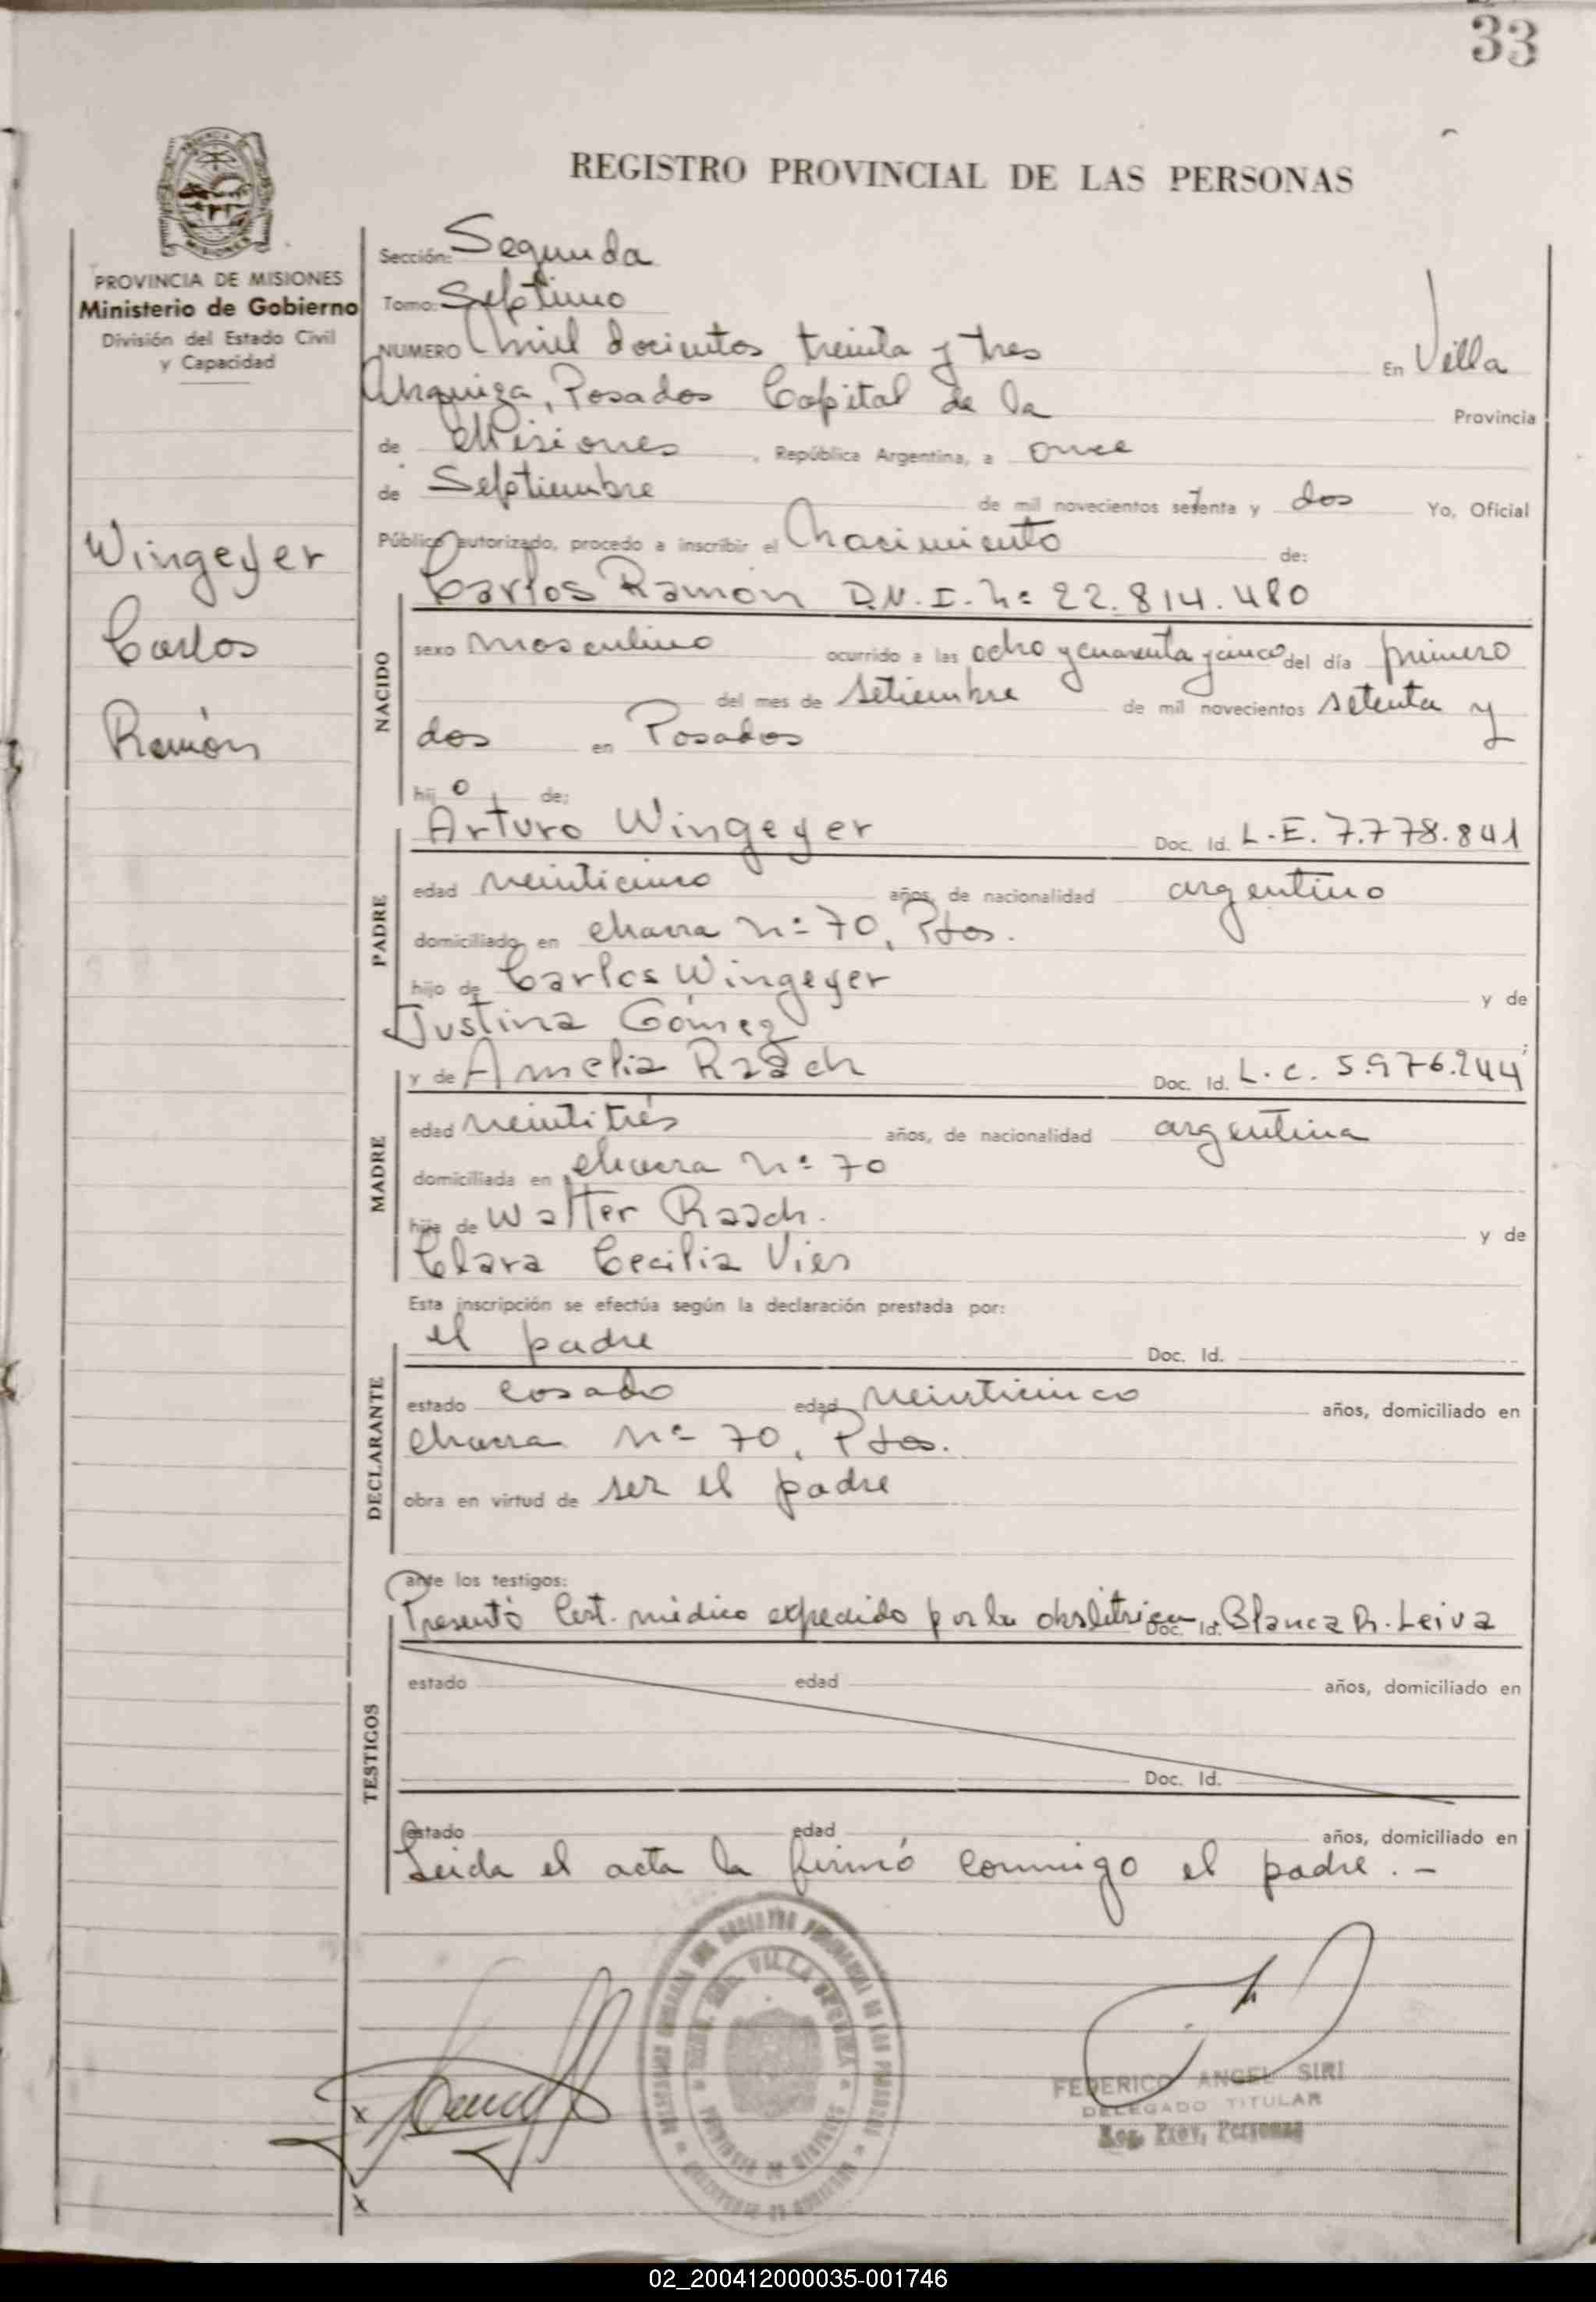 33
REGISTRO PROVINCIAL DE LAS PERSONAS
PROVINCIA DE MISIONES
Ministerio de Gobierno
División del Estado Civil
y Capacidad
Wingeyer
Carlos
Ramón
Sección: Segunda
Tomo: Septimo
NUMERO mil docientos treinta y tres En Villa
Urquiza, Posadas Capital de la Provincia
de Misiones, República Argentina, a once
de Septiembre de mil novecientos setenta y dos Yo, Oficial
Público autorizado, procedo a inscribir el Nacimiento de:
Carlos Ramón D.N.I. Nº 22.814.480
NACIDO
sexo masculino ocurrido a las ocho y cuarenta y cinco del día primero
del mes de setiembre de mil novecientos setenta y
dos en Posadas
hijo de:
Arturo Wingeyer Doc. Id. L.E. 7.778.841
PADRE
edad veinticinco años, de nacionalidad argentino
domiciliado en chacra nº 70, Pdas.
hijo de Carlos Wingeyer y de
Justina Gómez
y de Amelia Raach Doc. Id. L.C. 5.976.244
MADRE
edad veintitrés años, de nacionalidad argentina
domiciliada en chacra nº 70
hija de Walter Raach. y de
Clara Cecilia Vier
Esta inscripción se efectúa según la declaración prestada por:
el padre Doc. Id.
DECLARANTE
estado casado edad veinticinco años, domiciliado en
chacra nº 70, Pdas.
obra en virtud de ser el padre
ante los testigos:
Presentó Cert. médico expedido por la obstétrica Doc. Id. Blanca R. Leiva
TESTIGOS
estado edad años, domiciliado en
Doc. Id.
estado edad años, domiciliado en
Leida el acta la firmó conmigo el padre. -
x
x
VILLA URQUIZA
FEDERICO ANGEL SIRI
DELEGADO TITULAR
Reg. Prov. Personas
02_200412000035-001746